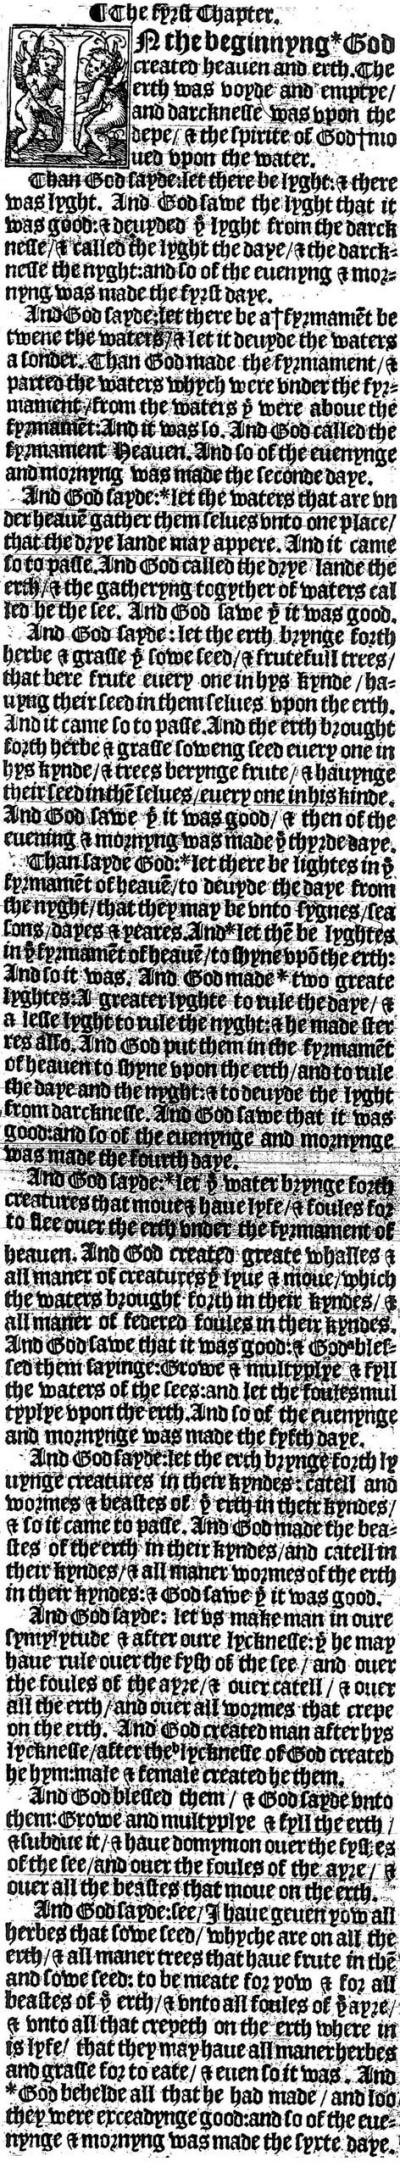 ¶The fyrst Chapter.
IN the beginnyng*God
created heauen and erth. The
erth was voyde and emptye/
and darcknesse was vpon the
depe/ & the spirite of God†mo
ued vpon the water.
Than God sayde:let there be lyght: & there
was lyght. And God sawe the lyght that it
was good: & deuyded yͤ lyght from the darck
nesse/& called the lyght the daye/& the darck-
nesse the nyght:and so of the euenyng & mor-
nyng was made the fyrst daye.
And God sayde:let there be a†fyrmamēt be
twene the waters/& let it deuyde the waters
a sonder. Than God made the fyrmament/&
parted the waters whych were vnder the fyr-
mament/from the waters yͭ were aboue the
fyrmamēt:And it was so. And God called the
fyrmament Heauen. And so of the euenynge
and mornyng was made the seconde daye.
And God sayde:*let the waters that are vn
der heauē gather them selues vnto one place/
that the drye lande may appere. And it came
so to passe. And God called the drye lande the
erth/& the gatheryng togyther of waters cal
led he the see. And God sawe yͭ it was good.
And God sayde: let the erth brynge forth
herbe & grasse yͭ sowe seed/& frutefull trees/
that bere frute euery one in hys kynde/ha-
uyng their seed in them selues vpon the erth.
And it came so to passe. And the erth brought
forth herbe & grasse soweng seed euery one in
hys kynde/& trees berynge frute/& hauynge
their seed in thē selues/euery one in his kinde.
And God sawe yͭ it was good/& then of the
euening & mornyng was made yͤ thyrde daye.
Than sayde God:*let there be lightes in yͤ
fyrmamēt of heauē/to deuyde the daye from
the nyght/that they may be vnto sygnes/sea
sons/dayes & yeares. And*let thē be lyghtes
in yͤ fyrmamēt of heauē/to shyne vpō the erth:
And so it was. And God made * two greate
lyghtes:A greater lyghte to rule the daye/&
a lesse lyght to rule the nyght:& he made ster
res also. And God put them in the fyrmamēt
of heauen to shyne vpon the erth/and to rule
the daye and the nyght:& to deuyde the lyght
from darcknesse. And God sawe that it was
good:and so of the euenynge and mornynge
was made the fourth daye.
And God sayde:*let yͤ water brynge forth
creatures that moue & haue lyfe/& foules for
to flee ouer the erth vnder the fyrmament of
heauen. And God created greate whalles &
all maner of creatures yͭ lyue & moue/which
the waters brought forth in their kyndes/&
all maner of federed foules in their kyndes.
And God sawe that it was good:& God bles-
sed them sayinge:Growe & multyplye & fyll
the waters of the sees:and let the foules mul
typlye vpon the erth. And so of the euenynge
and mornynge was made the fyfth daye.
And God sayde:let the erth brynge forth ly
uynge creatures in their kyndes: catell and
wormes & beastes of yͤ erth in their kyndes/
& so it came to passe. And God made the bea-
stes of the erth in their kyndes/and catell in
their kyndes/& all maner wormes of the erth
in their kyndes:& God sawe yͭ it was good.
And God sayde: let vs make man in oure
symylytude & after oure lycknesse:yͭ he may
haue rule ouer the fysh of the see/and ouer
the foules of the ayre/& ouer catell/& ouer
all the erth/and ouer all wormes that crepe
on the erth. And God created man after hys
lycknesse/after the lycknesse of God created
he hym:male & female created he them.
And God blessed them/ & God sayde vnto
them:Growe and multyplye & fyll the erth/
& subdue it/& haue domynion ouer the fysshes
of the see/and ouer the foules of the ayre/&
ouer all the beastes that moue on the erth.
And God sayde:see/I haue geuen yow all
herbes that sowe seed/whyche are on all the
erth/& all maner trees that haue frute in thē
and sowe seed: to be meate for yow & for all
beastes of yͤ erth/& vnto all foules of yͤ ayre/
& vnto all that crepeth on the erth where in
is lyfe/ that they may haue all maner herbes
and grasse for to eate/& euen so it was. And
*God behelde all that he had made/and loo
they were exceadynge good:and so of the eue-
nynge & mornyng was made the syxte daye.